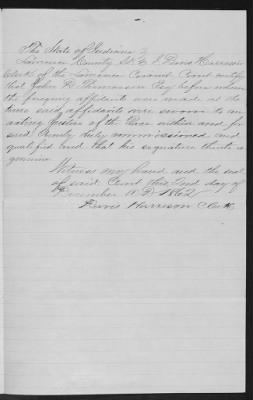 The State of Indiana
Lawrence County Sct. I Davis Harrison
Clerk of the Lawrence Circuit Court certify
that John R. Thomasson Esq before whom
the foregoing affidavit was made at the
time said affidavits were sworn to an
acting Justice of the Peace within and for
said County duly commissioned and
qualified and that his signature thereto is
genuine
Witness my hand and the seal
of said Court this 2nd day of
December A.D. 1862
Davis Harrison Clerk